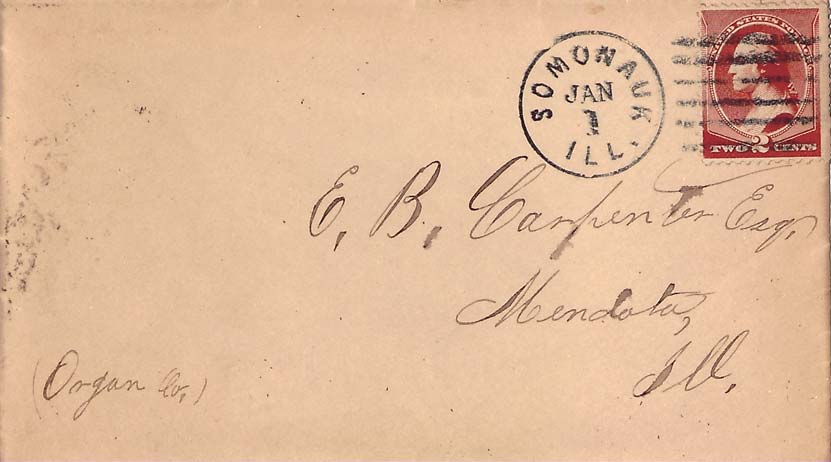 SOMONAUK
JAN
1
ILL.
UNITED STATES POSTAGE
TWO 2 CENTS
E. B. Carpenter Esq.
Mendota,
Ill.
(Organ Co.)